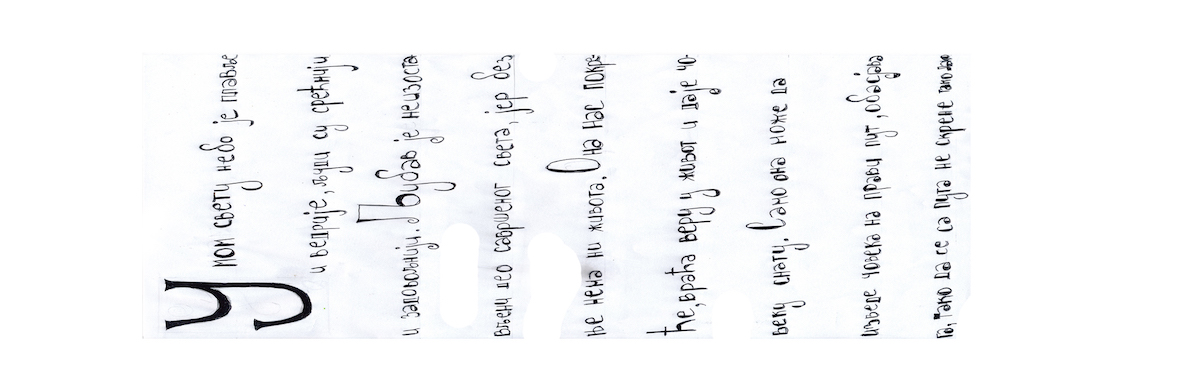 У мом свету небо је плавље
и ведрије, људи су срећнији
и задовољнији. Љубав је неизоста-
вљени део савршеног света, јер без
ње нема ни живота. Она нас покре-
ће, враћа веру у живот и даје чо-
веку снагу. Само она може да
изведе човека на прави пут, обасјава
га, тако да се са пута не скрене